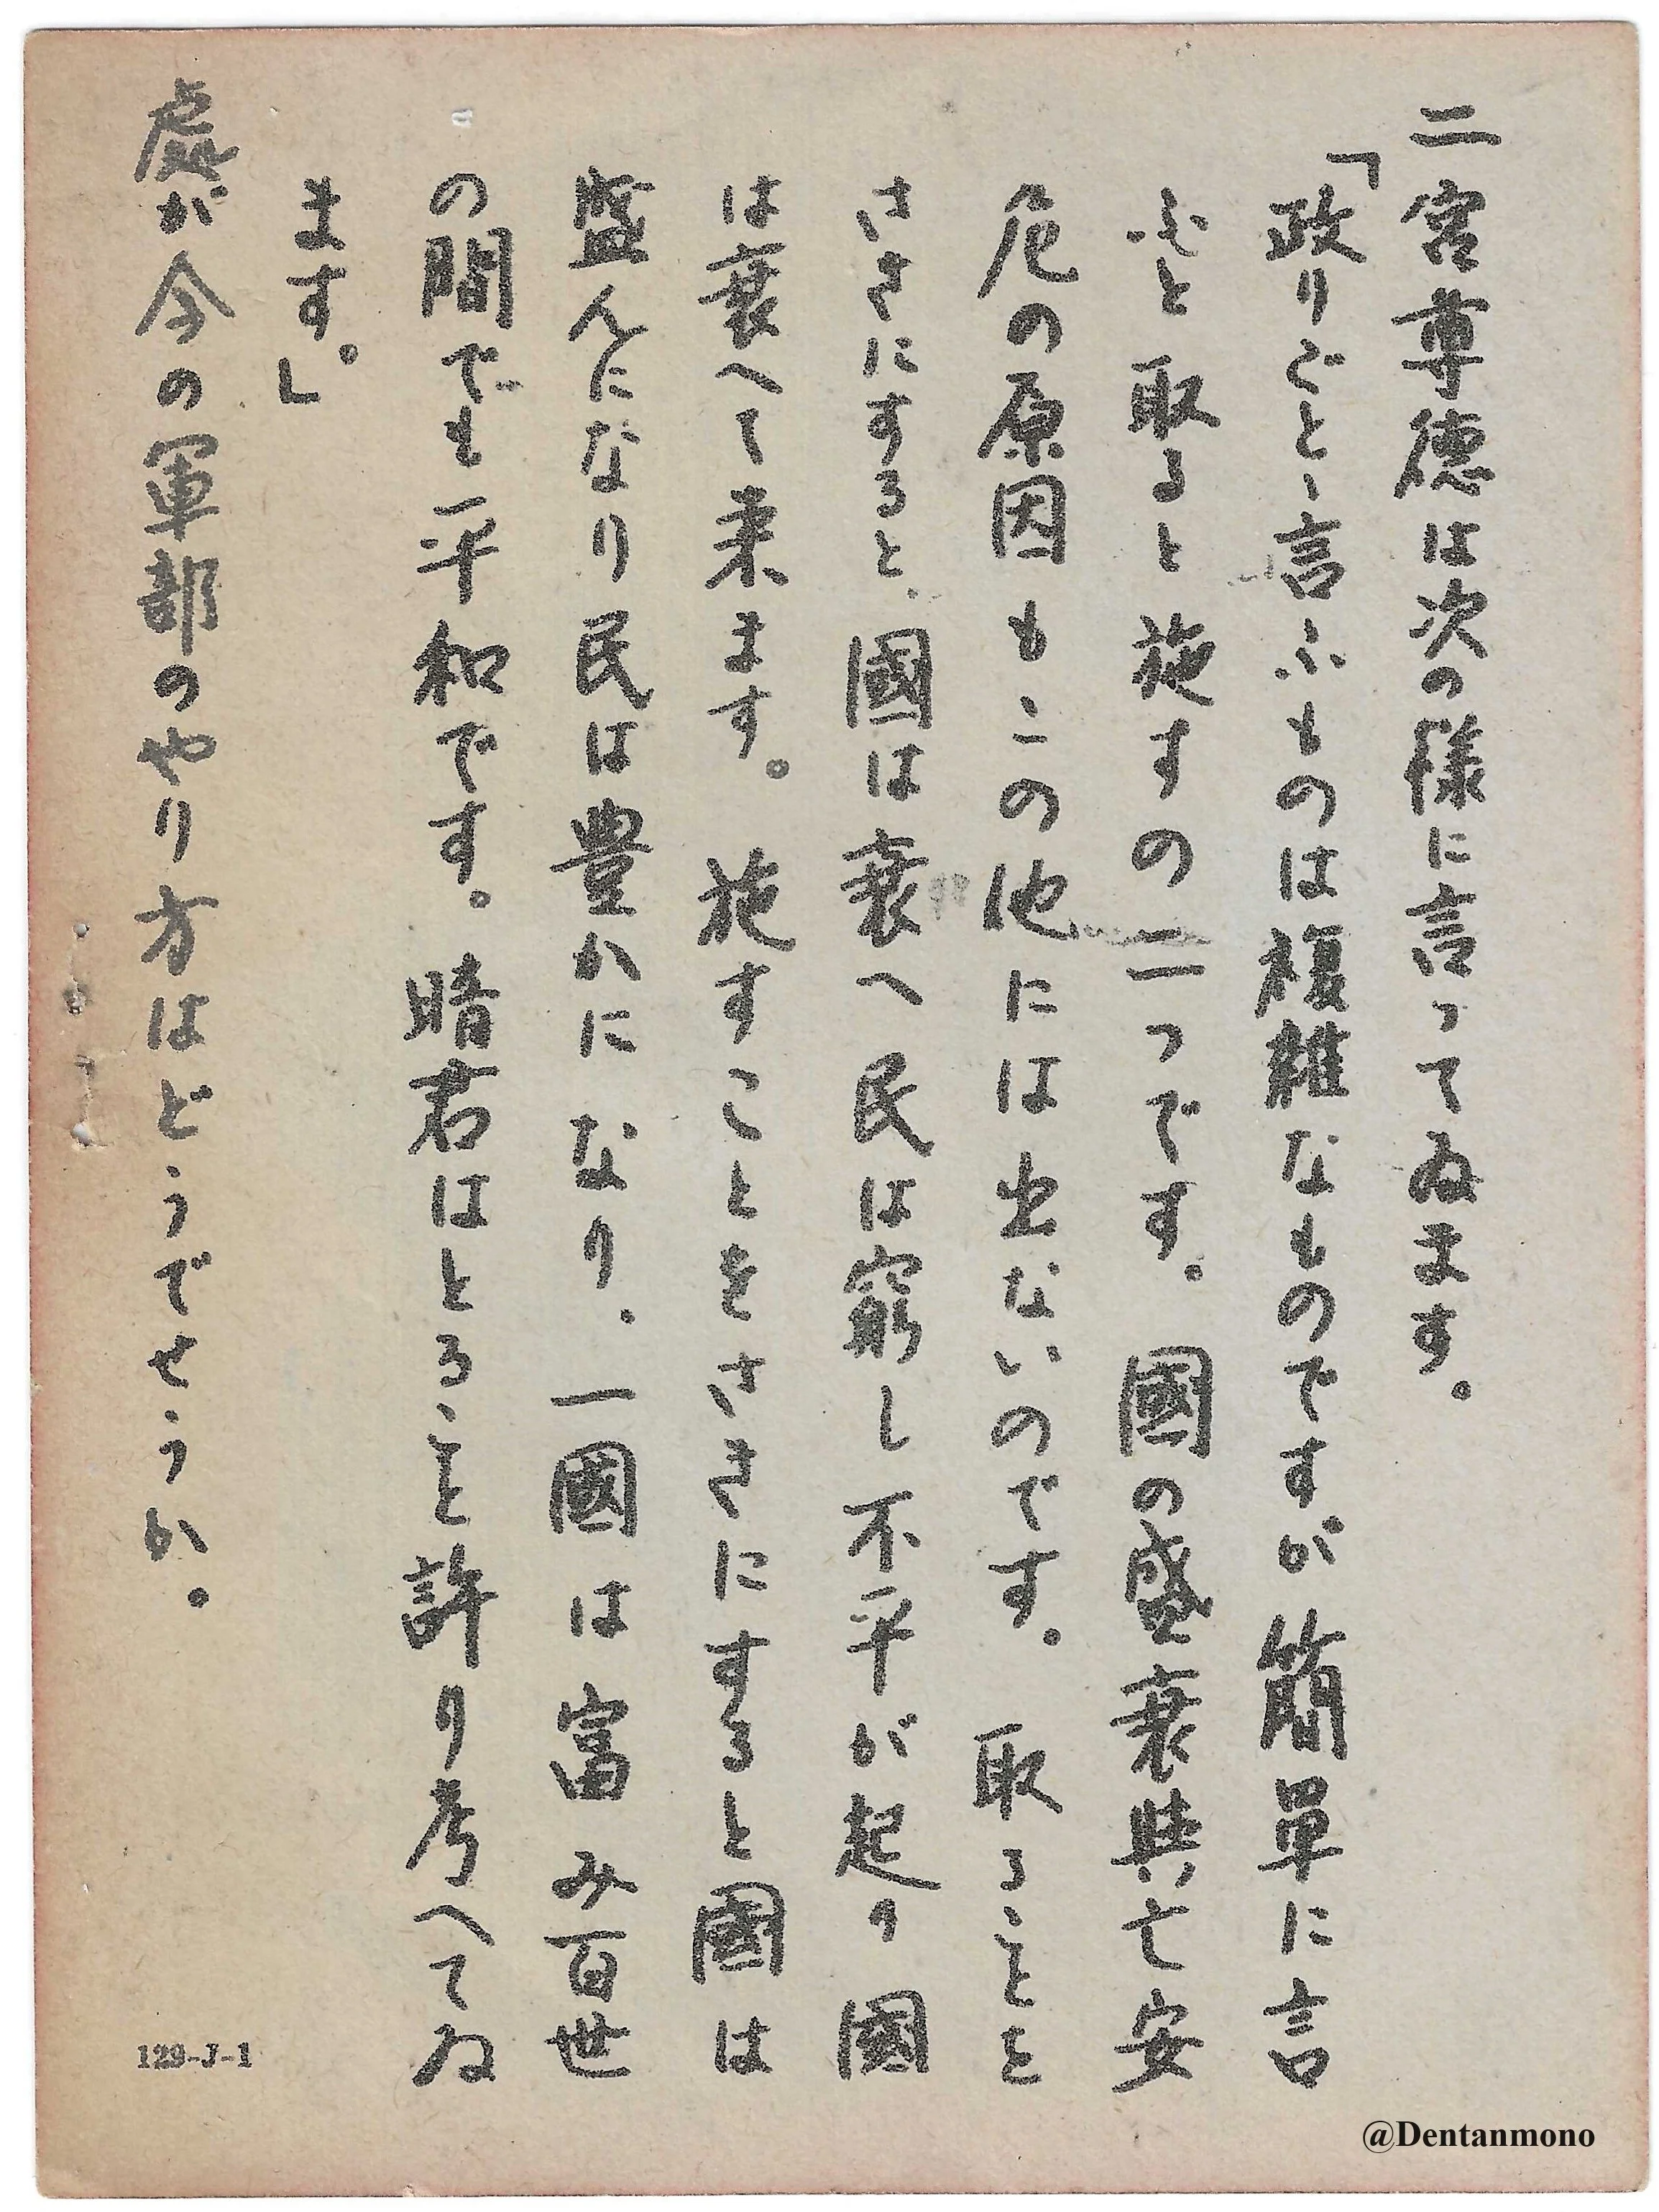 二宮尊徳は次の様に言ってゐます。
「政りごとゝ言ふものは複雑なものですが簡単に言
ふと取ると施すの二つです。國の盛衰興亡安
危の原因もこの他には出ないのです。取ることを
さきにすると、國は衰へ民は窮し不平が起り國
は衰へて来ます。施すことをさきにすると國は
盛んになり民は豊かになり、一國は富み百世
の間でも平和です。暗君はとること許り考へてゐ
ます。」
處が今の軍部のやり方はどうでせうか。
129-J-1
@Dentanmono